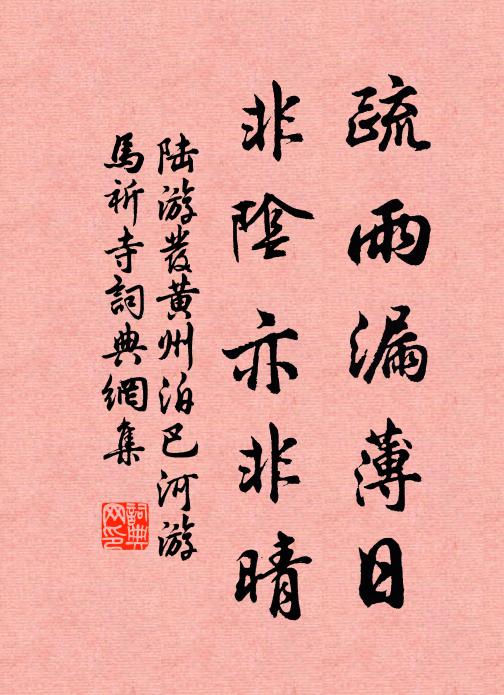 疏雨漏薄日
非陰亦非晴
陆游發黄州泊巴河游
馬祈寺詞典網集
詞典网印